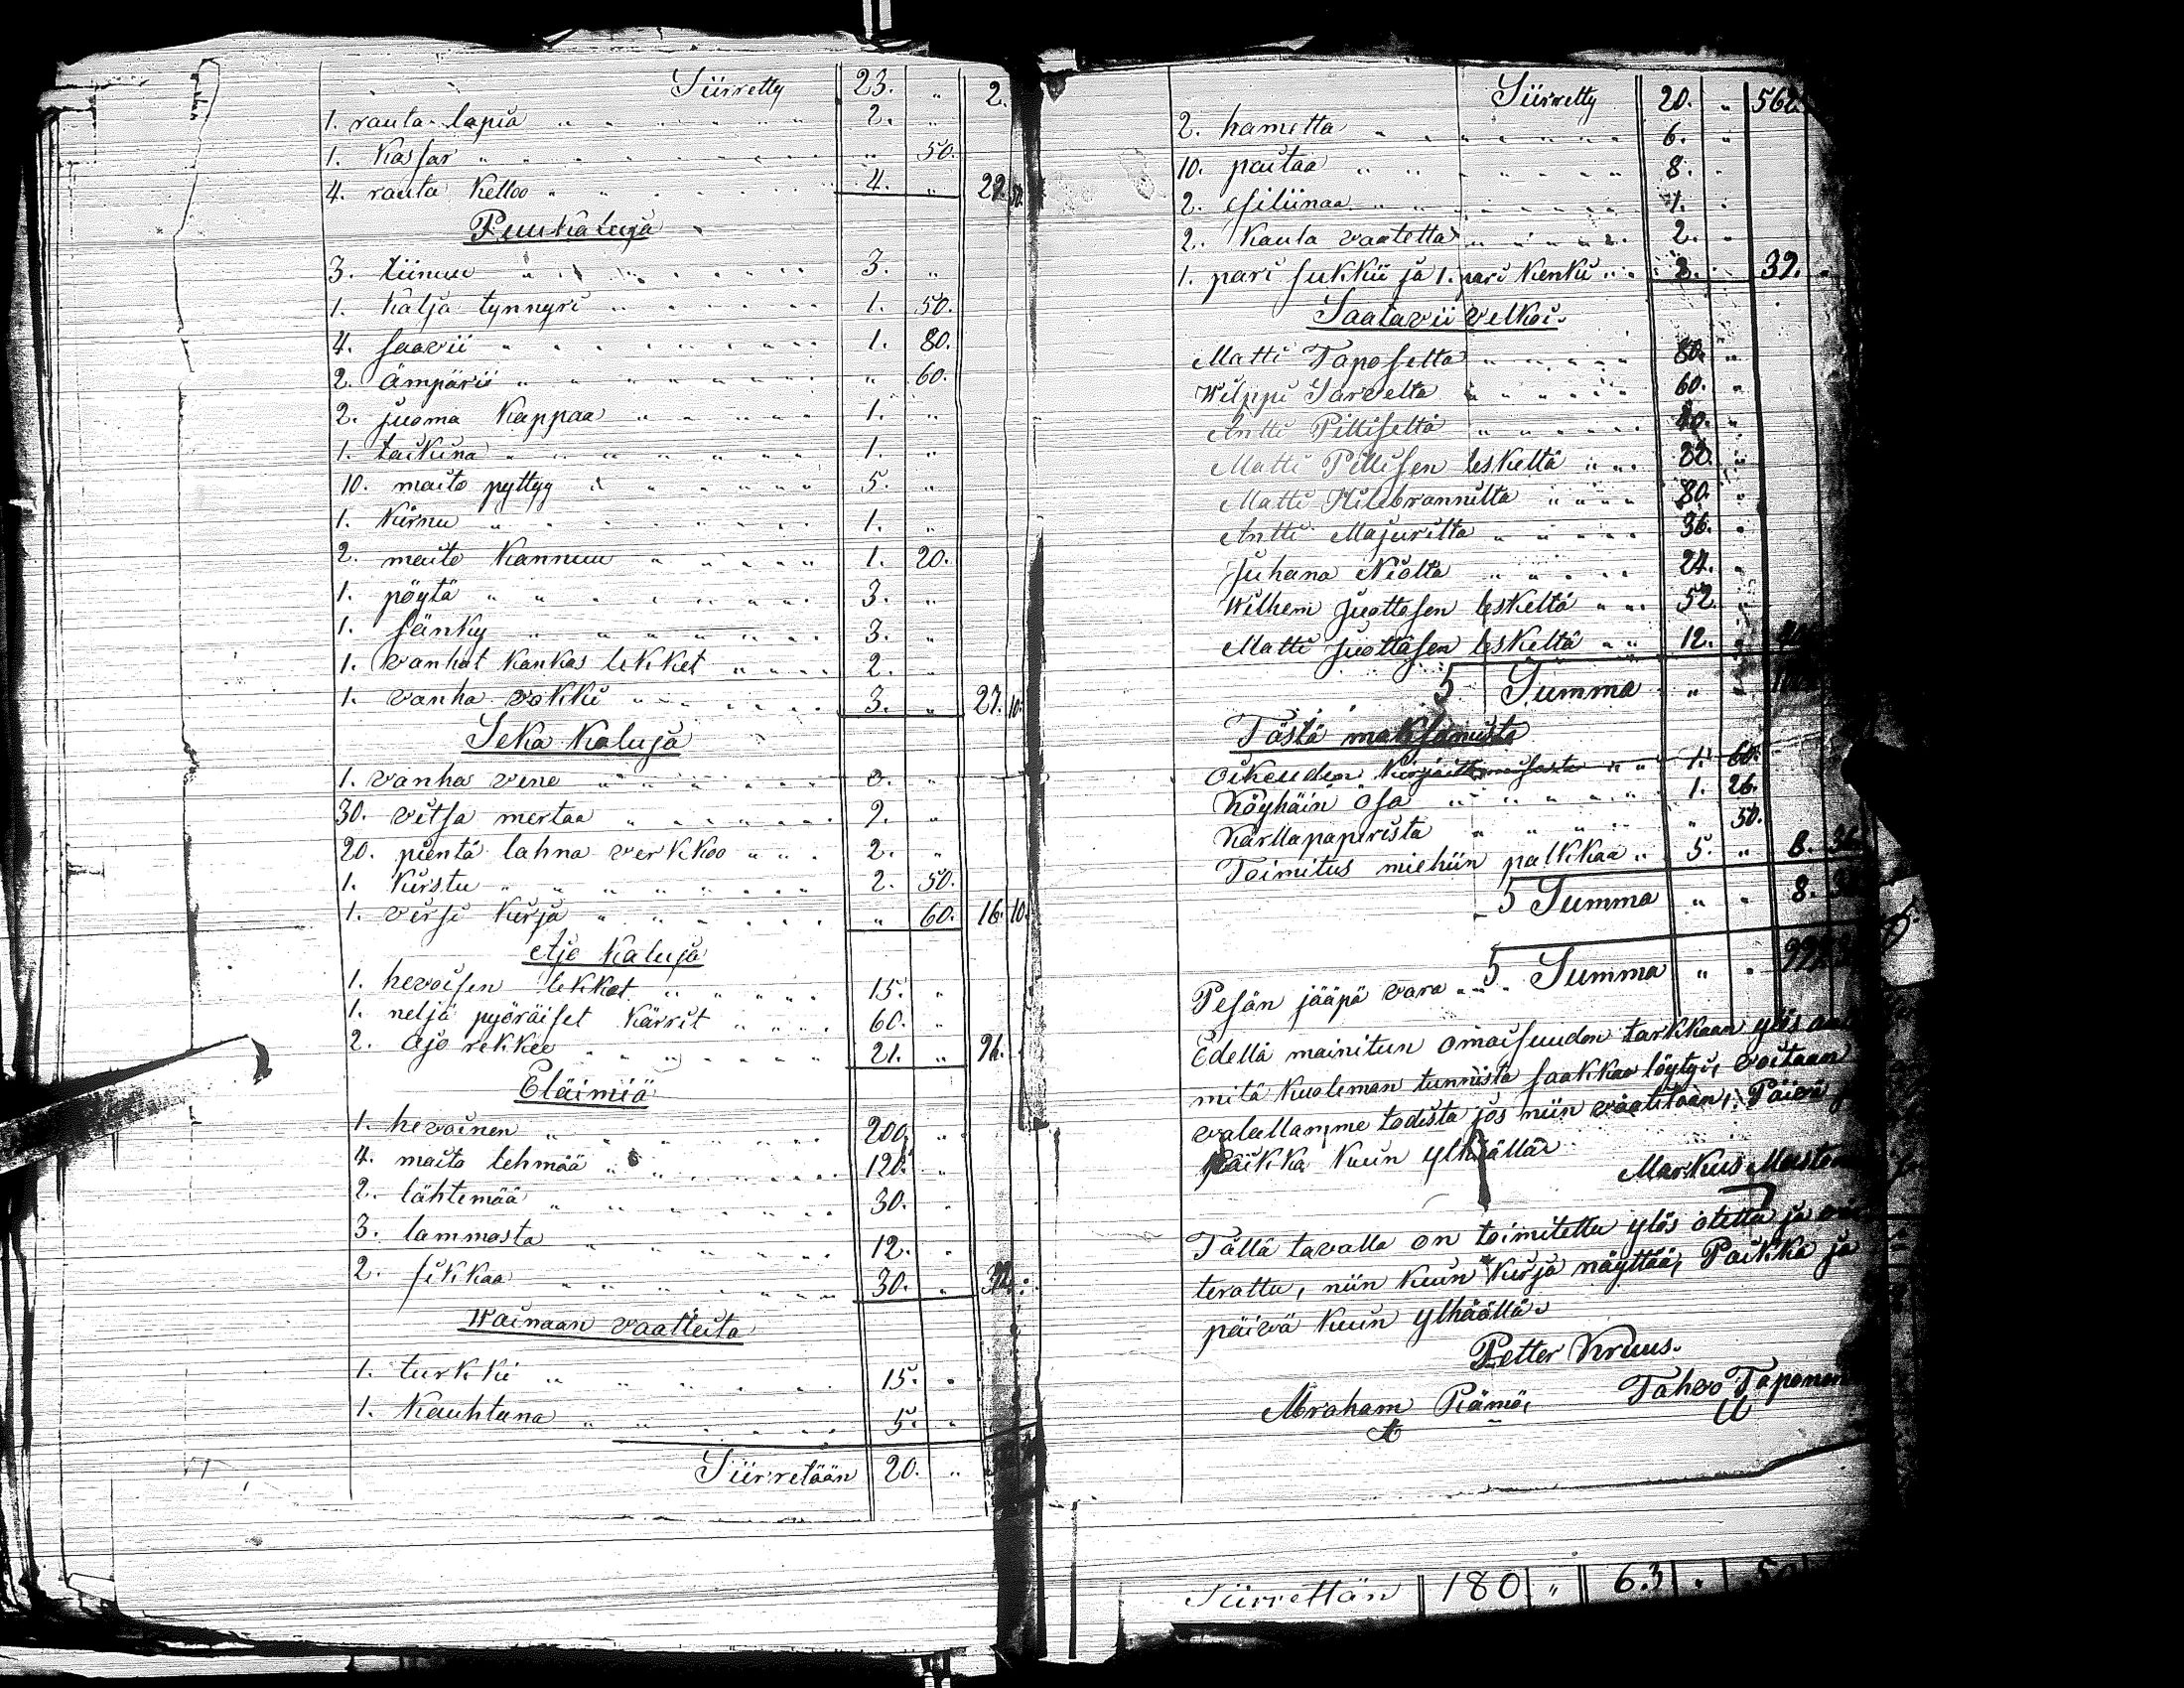 Siirretty 23. " 2.
1. rauta lapia " 2. "
1. Kassar " " 50.
4. rauta Kelloo " 4. "
Puukaluja
3. tiinuu " 3. "
1. kalja tynnyri " 1. 50.
4. saavii " 1. 80.
2. ämpärii " " 60.
2. juoma Kappaa " 1. "
1. taikina " 1. "
10. maito pyttyy " 5. "
1. Kirnu " 1. "
2. maito Kannuu " 1. 20.
1. pöytä " 3. "
1. sänky " 3. "
1. vanhat Kankas lekket " 2. "
1. vanha vokki " 3. " 27. 10.
Seka Kaluja
1. vanha vene " "
30. vitsa mertaa " 9. "
20. pientä lahna verkkoo " 2. "
1. Kirstu " 2. 50.
1. virsi Kirja " " 60. 16. 10.
Ajo Kaluja
1. hevoisen lekkat " 15. "
1. neljä pyöräiset Kärrit " 60. "
2. ajo rekkee " 21. " 96.
Eläimiä
1. hevoinen " 200. "
4. maito lehmää " 120. "
2. lähtemää " 30. "
3. lammasta " 12. "
2. sikkaa " 30. "
Wainaan vaatteita
1. turkki " 15. "
1. Kauhtana " 5. "
Siirretään 20. "
Siirretty 20. "
2. hametta " 6. "
10. paitaa " 8. "
2. esiliinaa "
2. Kaula vaatetta " 2. "
1. pari sukkii ja 1. pari Kenkii " 39. "
Saatavii velkoi.
Matti Taposelta " 80. "
Wilppi Sarvelta " 60. "
Antti Pilliseltä "
Matti Pillisen leskeltä "
Matti Hilebrannilta " 80. "
Antti Majurilta " 36. "
Juhana Niöltä " 24. "
Wilhem Juottosen leskeltä " 52. "
Matti Juottosen leskeltä " 12. "
Summa " "
Tästä maksamista
Oikeuden " 1. 60.
Köyhäin osa " 1. 26.
Karllapaperista " " 50.
Toimitus miehiin palkkaa " 5. " 8. 36.
Summa " " 8.
Pesän jääpä vara " Summa " "
Edellä mainitun omaisuuden tarkkaan ylös
mitä kuoleman tunnista saakkaa löytyi, voitaan
valallamme todista jos niin vaatitaan, Päivä
paikka kuin ylhäällä
Markus
Tällä tavalla on toimitettu ylös otettu ja
terattu, niin kuin kirja näyttää, Paikka ja
päivä kuin ylhäällä
Petter Kruus.
Abraham Piämö, Tahvo Taponen
Siirrettän 180 " 63